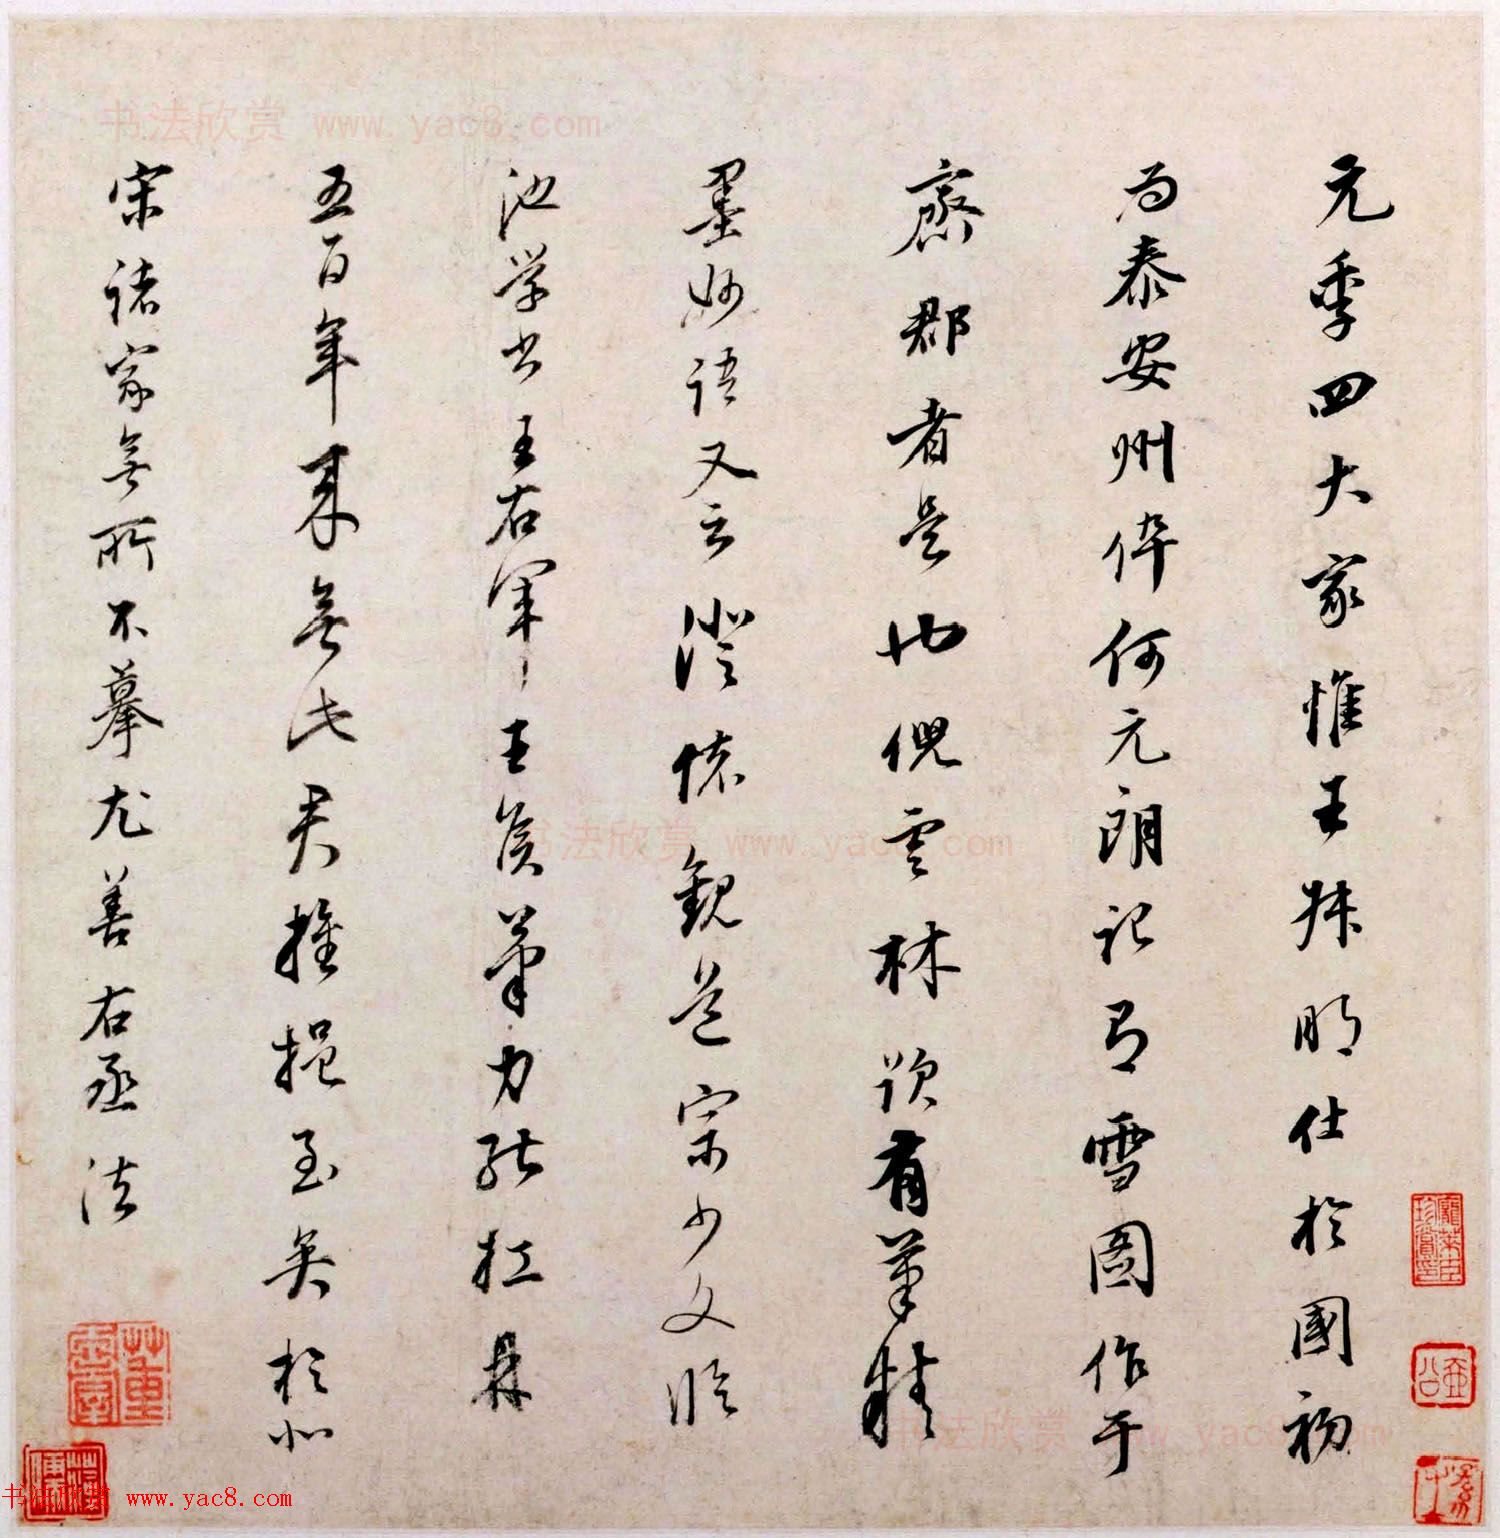 元季四大家惟王叔明仕於國初
为泰安州倅何元朗記有雪圖作于
齋郡者是也倪雲林欵有筆精
墨妙語又云澄懷觀道宗少文臨
池学书王右軍王侯筆力能扛鼎
五百年来無此君推挹至矣於北
宋諸家無所不摹尤善右丞法
书法欣赏 www.yac8.com
书法欣赏 www.yac8.com
书法欣赏 www.yac8.com
书法欣赏 www.yac8.com
龐萊臣珍賞印